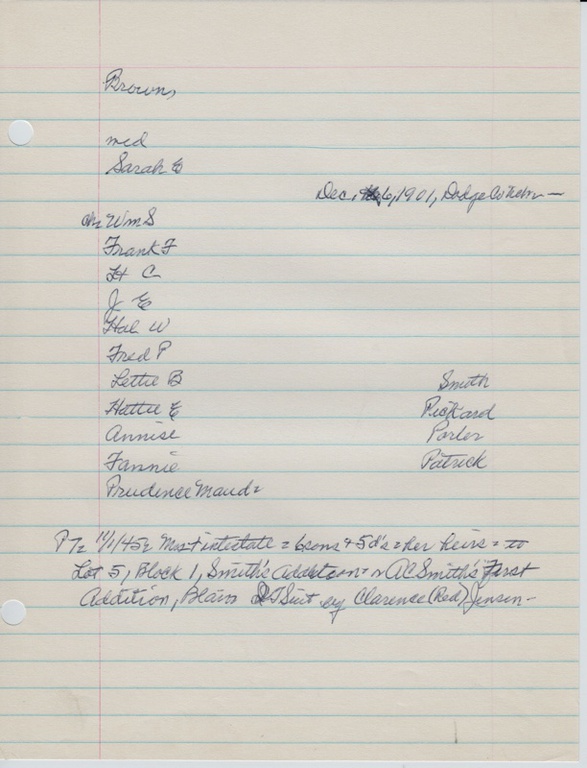 Brown,
md
Sarah E
Dec, 6, 1901, Dodge Co Nebr —
ch Wm S
Frank F
H C
J E
Hal W
Fred P
Lettie B Smith
Hattie E Rickard
Annise Porler
Fannie Patrick
Prudence Maud =
P 72 11/1/45 intestate = 6 sons + 5 d's = her heirs = to
Lot 5, Block 1, Smith's Addition = A C Smith's First
Addition, Blair by Clarence (Red) Jensen —